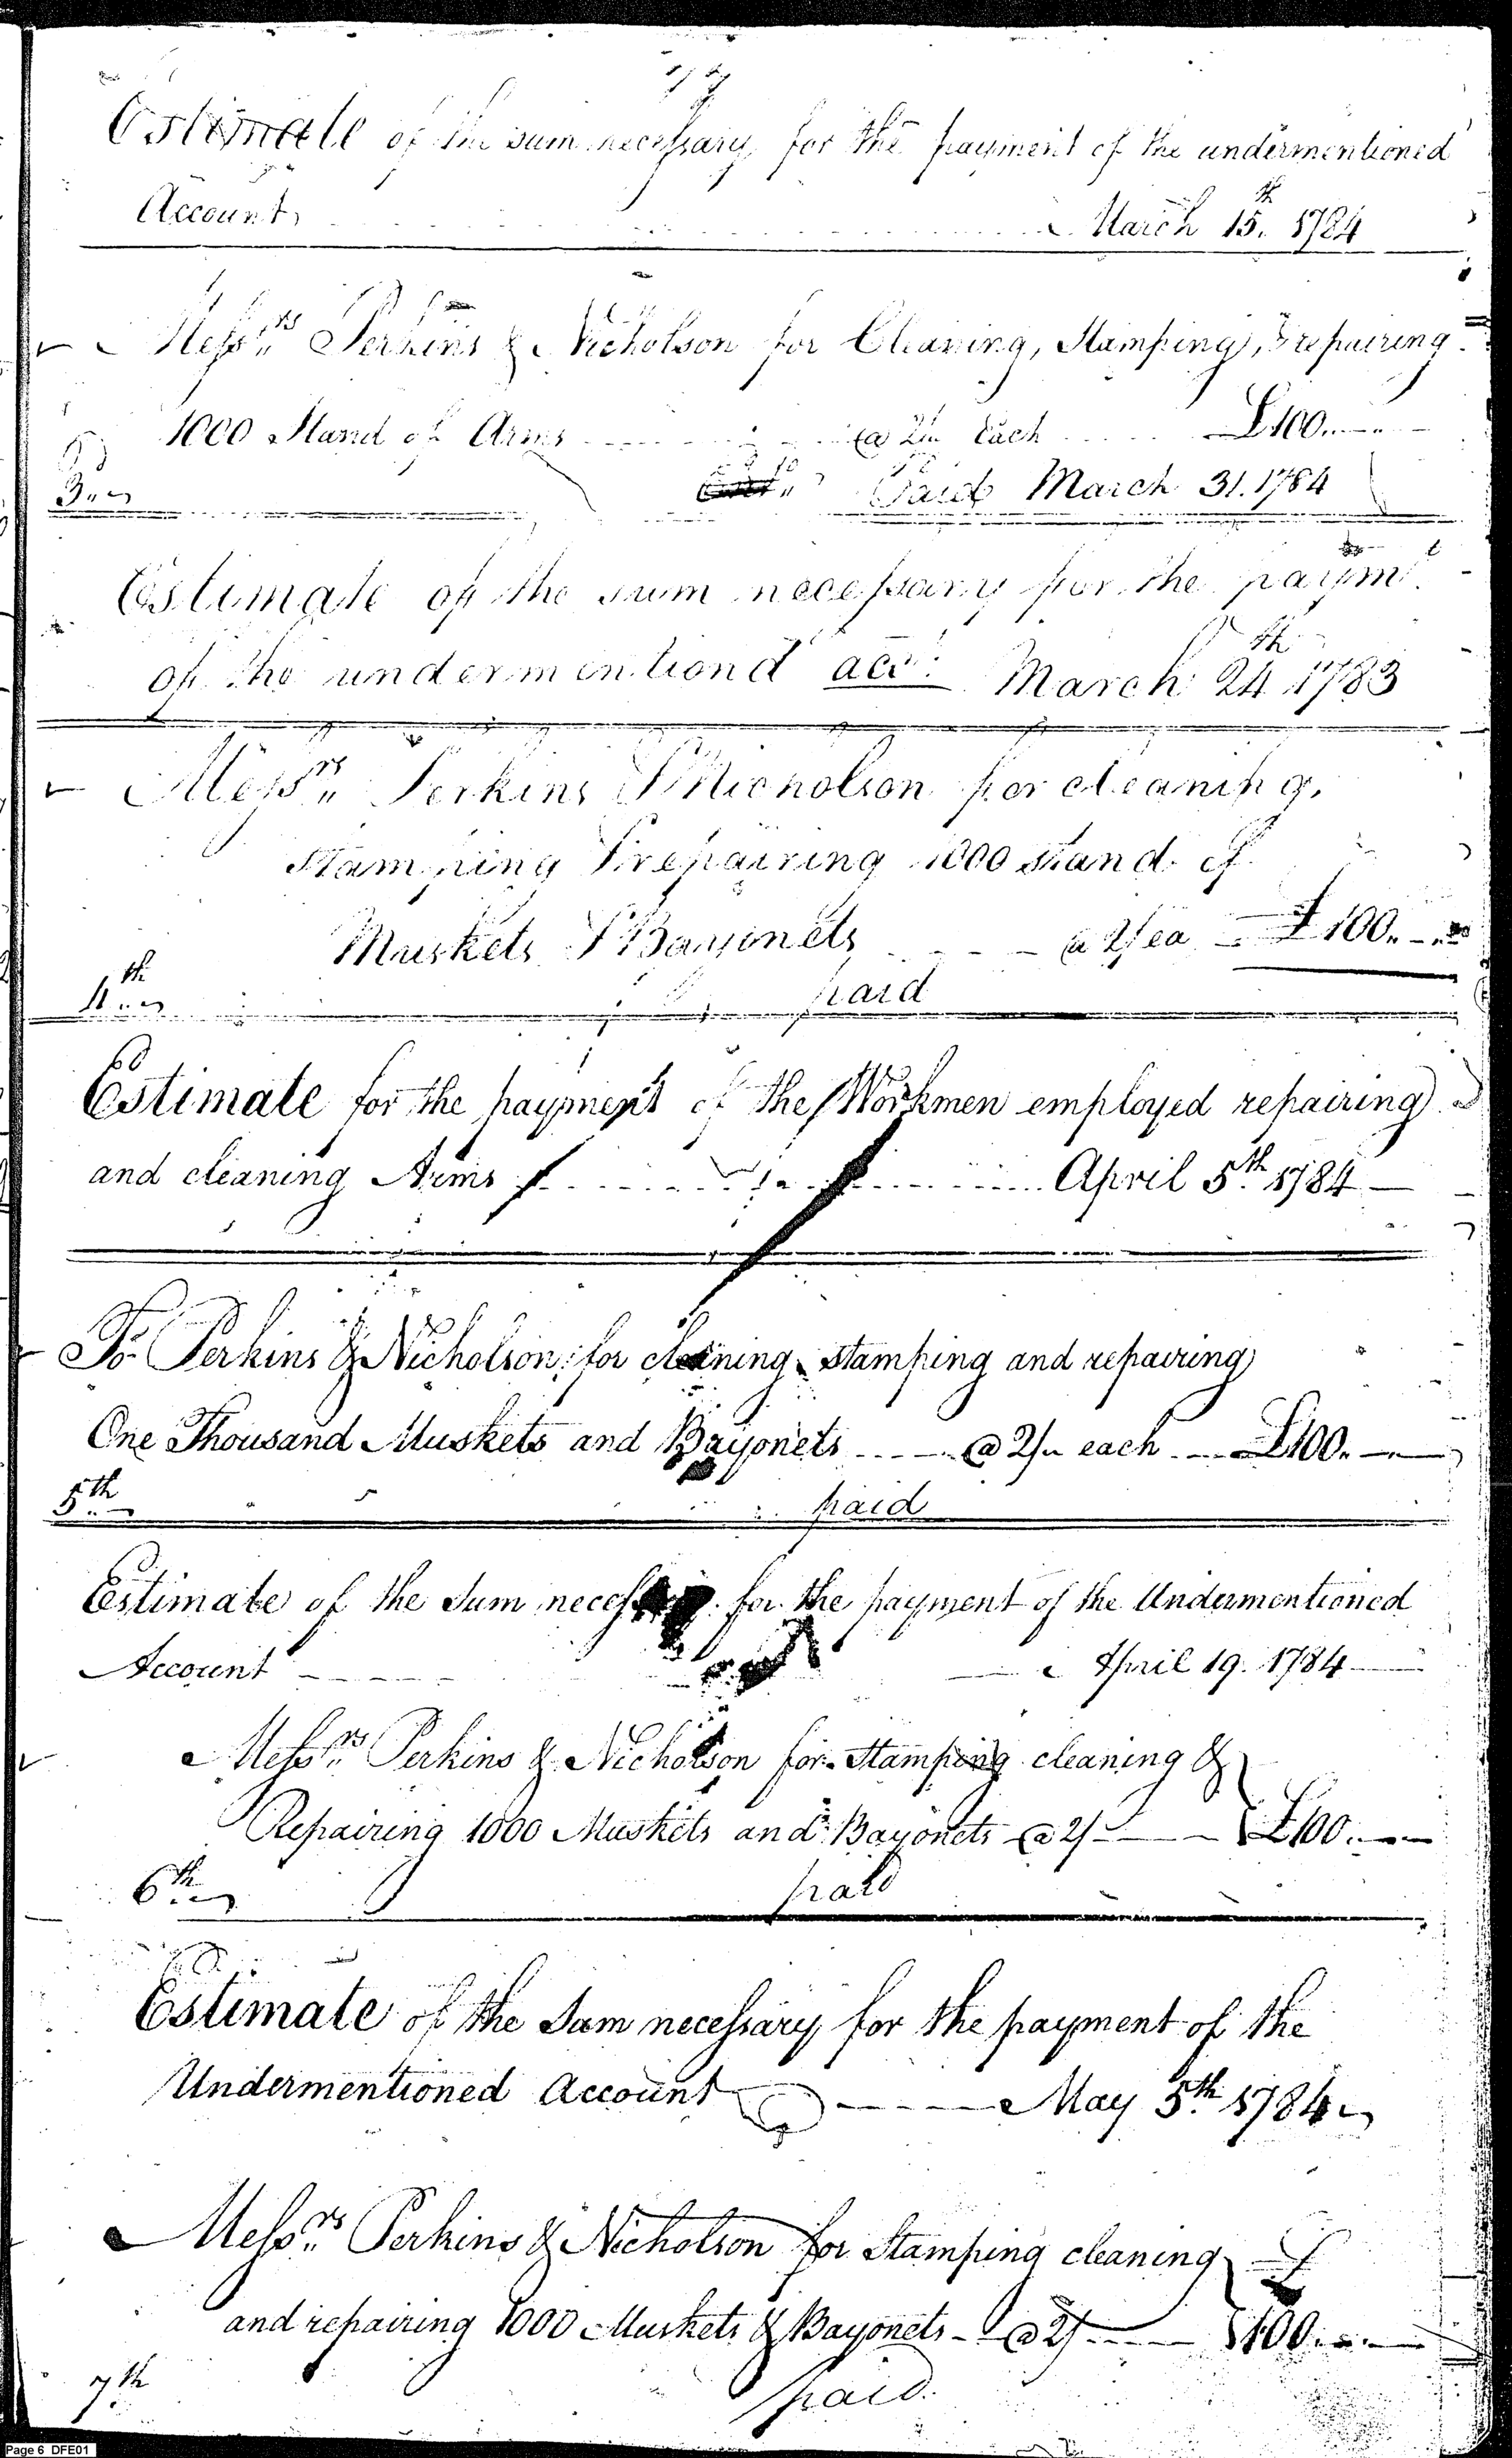 Estimate of the sum necessary for the payment of the undermentioned
Account, March 15.th 1784
Messrs Perkins & Nicholson for Cleaning, Stamping, & repairing
1000 Stand of Arms @ 2/ Each £100..
3.. Paid March 31. 1784
Estimate of the sum necessary for the paymt.
of the undermentiond acct. March 24th 1783
Messrs Perkins & Nicholson for cleaning,
Stamping & repairing 1000 stand of
Muskets & Bayonets a 2/ ea £100..
4th paid
Estimate for the payment of the Workmen employed repairing
and cleaning Arms April 5th 1784
To Perkins & Nicholson for cleaning stamping and repairing
One Thousand Muskets and Bayonets @ 2/ each £100.
5th paid
Estimate of the Sum necessary for the payment of the Undermentioned
Account April 19. 1784
Messrs Perkins & Nicholson for Stamping cleaning &
Repairing 1000 Muskets and Bayonets @ 2/ £100..
6th paid
Estimate of the Sum necessary for the payment of the
Undermentioned Account May 5th 1784
Messrs Perkins & Nicholson for Stamping cleaning £
and repairing 1000 Muskets & Bayonets @ 2/ 100..
7th paid.
Page 6 DFE01